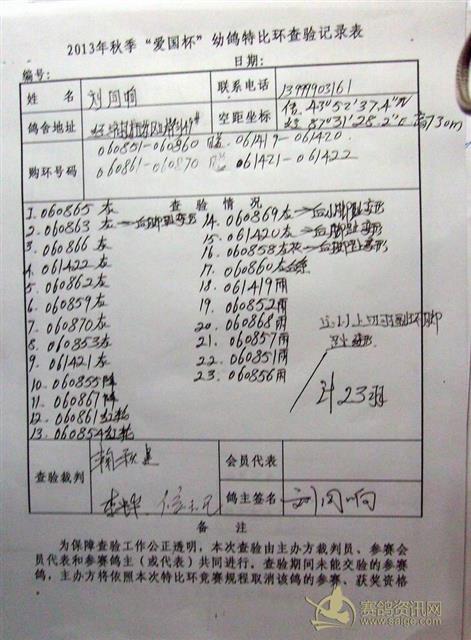 2013年秋季“爱国杯”幼鸽特比环查验记录表
编号: 日期:
姓 名 刘同响 联系电话 13999903161
鸽舍地址 空距坐标 43°52'37.4"N
87°31'28.2"E 高730m
购环号码 060851-060860 061419-061420
060861-060870 061421-061422
查 验 情 况
1. 060865 灰
2. 060863 灰
3. 060866 灰
4. 061422 灰
5. 060862 灰
6. 060859 灰
7. 060870 灰
8. 060853 灰
9. 061421 灰
10. 060855
11. 060867
12. 060861 红轮
13. 060854 红轮
14. 060869 灰
15. 061420 灰
16. 060858
17. 060860
18. 061419 雨
19. 060852 雨
20. 060868 雨
21. 060857 雨
22. 060851 雨
23. 060856 雨
计23羽
查验裁判 会员代表
鸽主签名 刘同响
备 注
为保障查验工作公正透明，本次查验由主办方裁判员、参赛会
员代表和参赛鸽主（或代表）共同进行。查验期间未能交验的参赛
鸽，主办方将依照本次特比环竞赛规程取消该鸽的参赛、获奖资格
赛鸽资讯网
www.saige.com